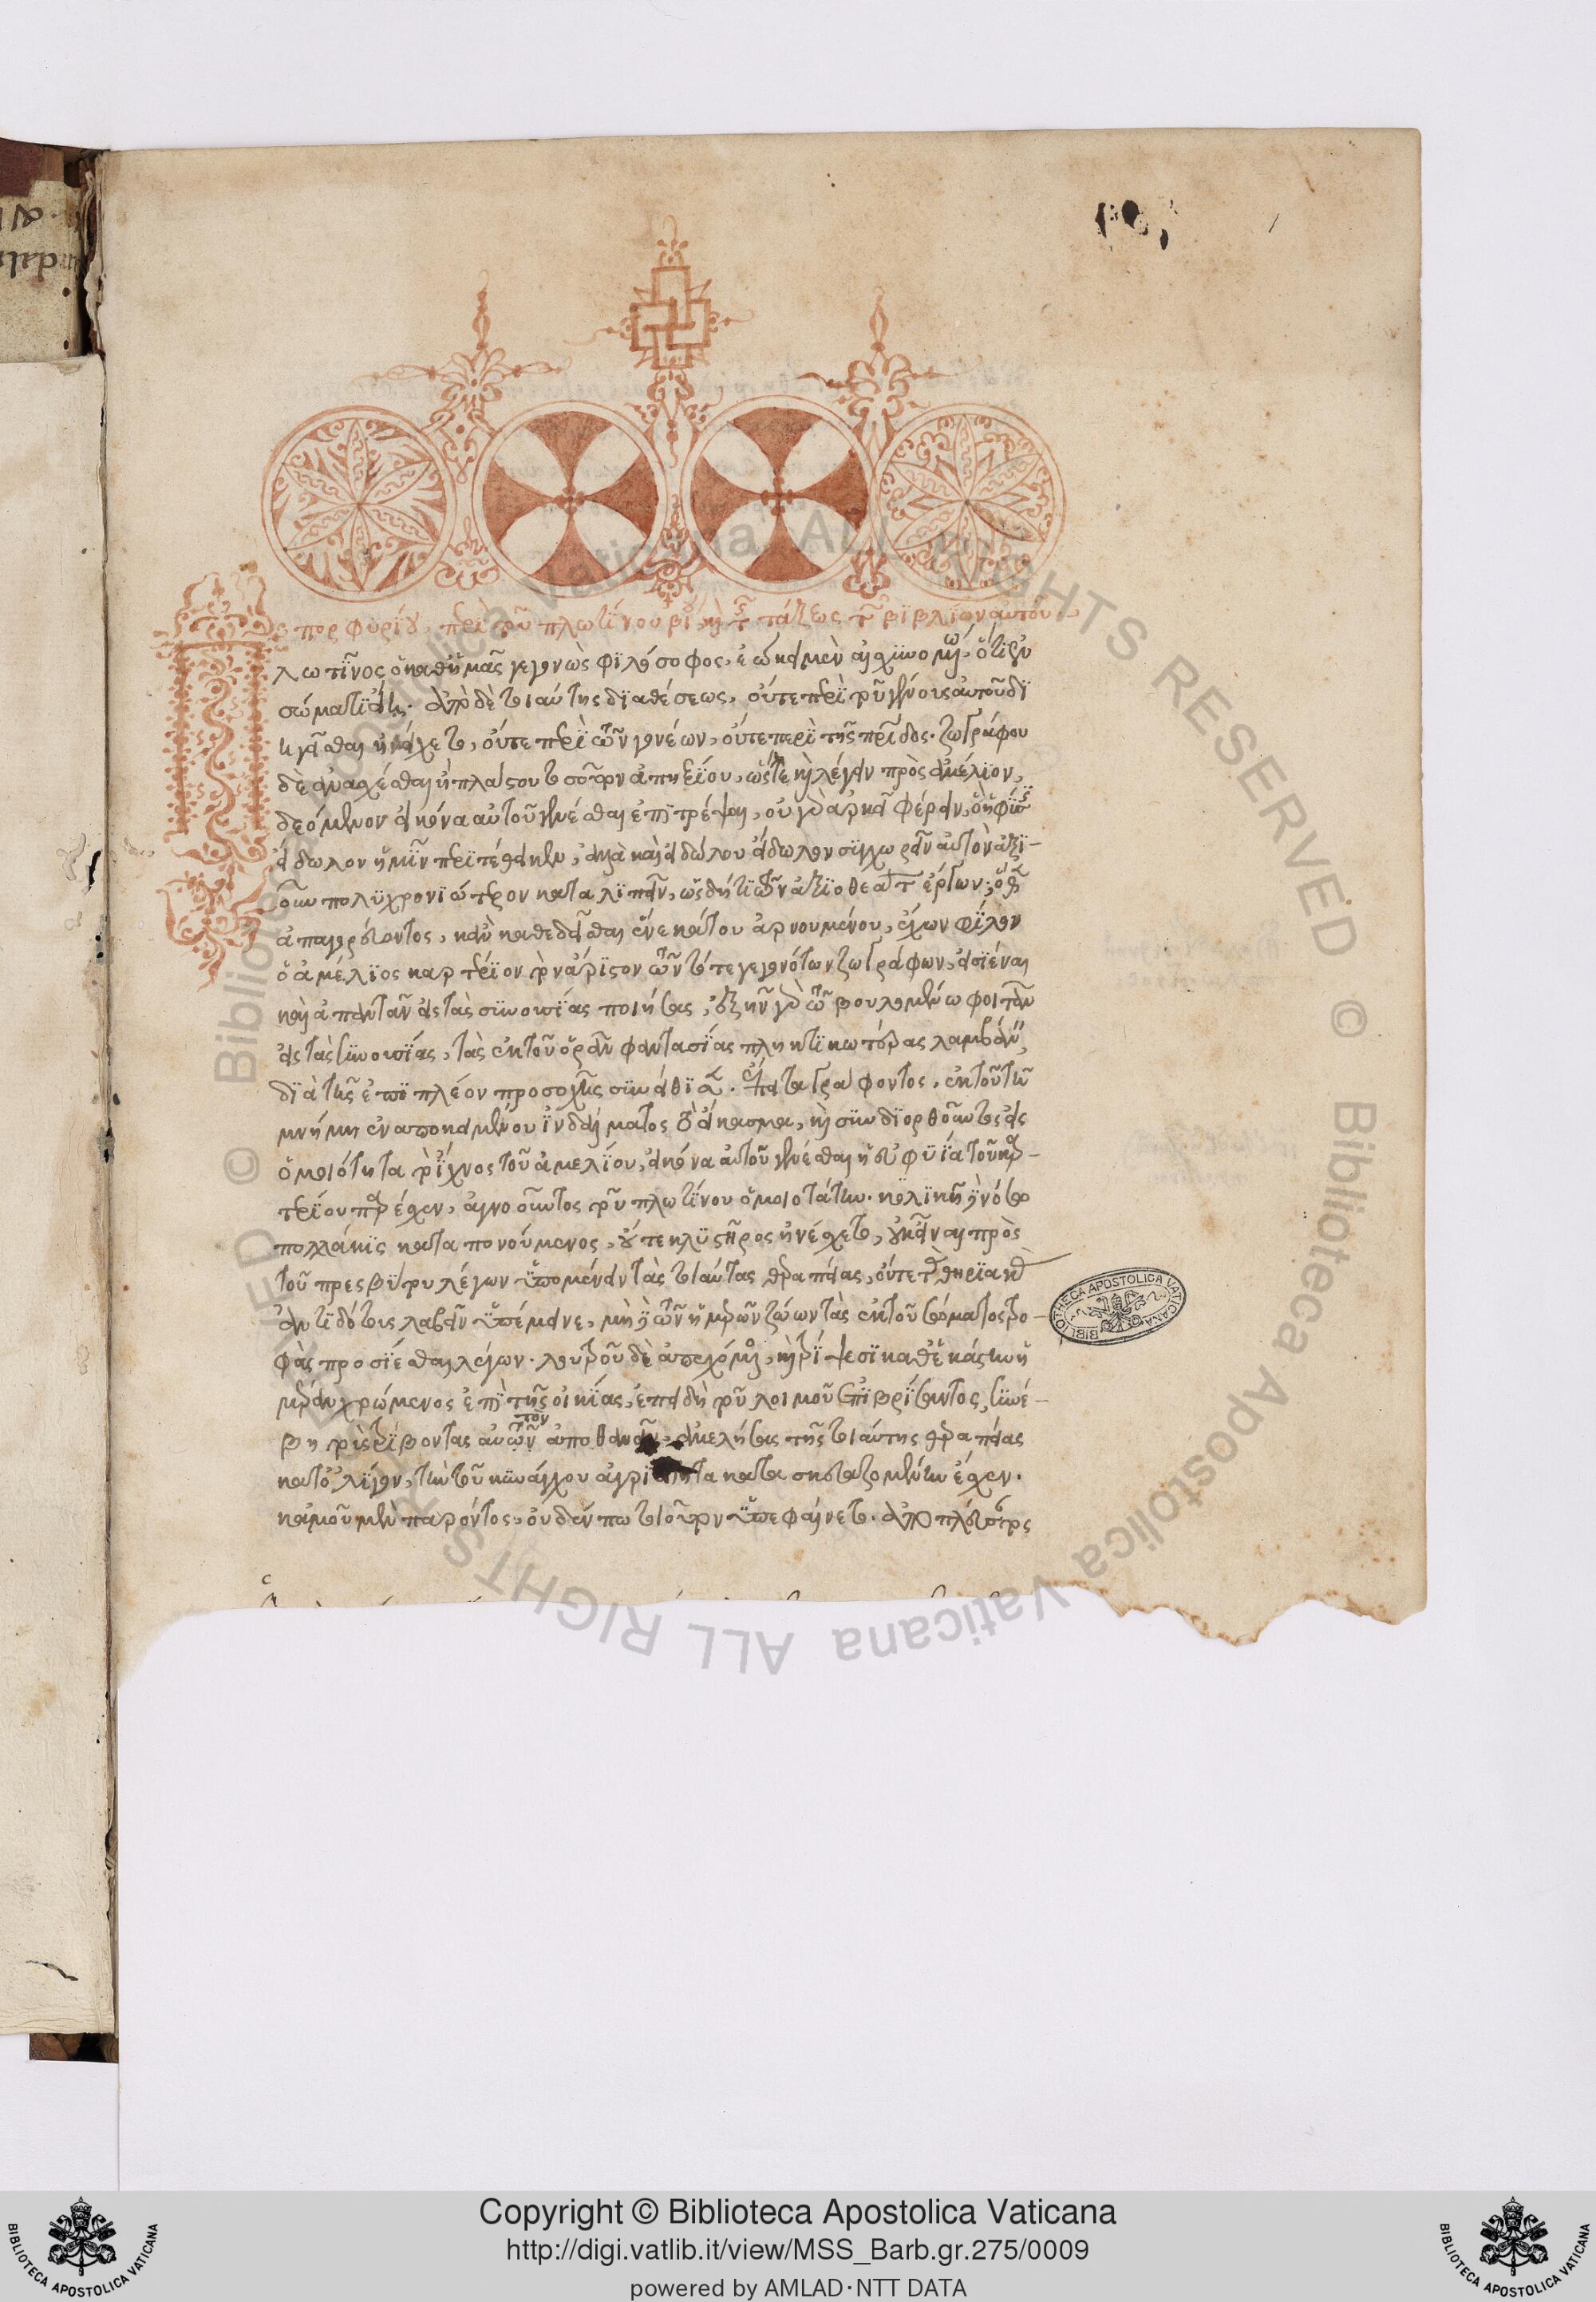 πορφυρίου, περὶ τοῦ πλωτίνου βίου, καὶ τῆς τάξεως τῶν βιβλίων αὐτοῦ
λωτῖνος ὁ καθ' ἡμᾶς γεγονὼς φιλόσοφος, ἐώκει μὲν αἰσχυνομένω, ὅτι ἐν
σώματι εἴη. ἀπὸ δὲ τοιαύτης διαθέσεως, οὔτε περὶ τοῦ γένους αὐτοῦ δι
ηγεῖσθαι ἠνείχετο, οὔτε περὶ τῶν γονέων, οὔτε περὶ τῆς πατρίδος. ζωγράφου
δὲ ἀνασχέσθαι ἢ πλάστου τοσοῦτον ἀπηξίου, ὥστε καὶ λέγειν πρὸς ἀμέλιον,
δεόμενον εἰκόνα αὐτοῦ γενέσθαι ἐπιτρέψαι, οὐ γὰρ ἀρκεῖ φέρειν, ὃ ἡ φύσις
εἴδωλον ἡμῖν περιτέθεικεν, ἀλλὰ καὶ εἰδώλου εἴδωλον συγχωρεῖν αὐτὸν ἀξι-
οῦν πολυχρονιώτερον καταλιπεῖν, ὡς δή τι τῶν ἀξιοθεάτων ἔργων; ὅθεν
ἀπαγορεύοντος, καὶ καθεδεῖσθαι ἕνεκα του ἀρνουμένου, ἔχων φίλον
ὁ ἀμέλιος καρτέριον τὸν ἄριστον τῶν τότε γεγονότων ζωγράφων, εἰσιέναι
καὶ ἀπαντᾶν εἰς τὰς συνουσίας ποιήσας, ἐξῆν γὰρ τῶ βουλομένω φοιτᾶν
εἰς τὰς συνουσίας, τὰς ἐκ τοῦ ὁρᾶν φαντασίας πληκτικωτέρας λαμβάνειν,
διὰ τῆς ἐπὶ πλέον προσοχῆς συνείθισεν. ἔπειτα γράφοντος, ἐκ τοῦ τῆ
μνήμη ἐναποκειμένου ἰνδάλματος τὸ εἴκασμα, καὶ συνδιορθοῦντος εἰς
ὁμοιότητα τὸ ἴχνος τοῦ ἀμελίου, εἰκόνα αὐτοῦ γενέσθαι ἡ εὐφυΐα τοῦ καρ-
τερίου παρέσχεν, ἀγνοοῦντος τοῦ πλωτίνου ὁμοιοτάτην. κωλικῆ νόσω
πολλάκις καταπονούμενος, οὔτε κλυστῆρος ἠνέσχετο, οὐκ εἶναι πρὸς
τοῦ πρεσβύτου λέγων ὑπομένειν τὰς τοιαύτας θεραπείας, οὔτε τὰς θηριακὰς
ἀντιδότους λαβεῖν ὑπέμεινε, μηδὲ τῶν ἡμέρων ζώων τὰς ἐκ τοῦ σώματος τρο-
φὰς προσίεσθαι λέγων. λουτροῦ δὲ ἀπεχόμενος, καὶ τρίψεσι καθ' ἑκάστην ἡ
μέραν χρώμενος ἐπὶ τῆς οἰκίας, ἐπειδὴ τοῦ λοιμοῦ ἐπιβρίσαντος, συνέ-
βη τοὺς τρίβοντας αὐτὸν ἀποθανεῖν, ἀμελήσας τῆς τοιαύτης θεραπείας
κατ' ὀλίγον, τὴν τοῦ κυνάγχου ἀγριότητα κατασκευαζομένην ἔσχεν.
κἀμοῦ μὲν παρόντος, οὐδέν πω τοιοῦτον ὑπεφαίνετο. ἀποπλεύσαντος